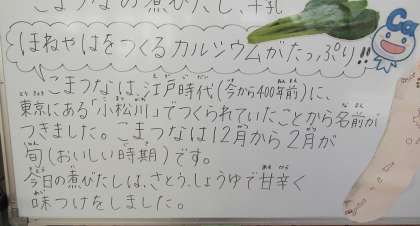 こまつなの煮びたし、牛乳
ほねやはをつくるカルシウムがたっぷり!!
Ca
こまつなは、江戸時代(今から400年前)に、
東京にある「小松川」でつくられていたことから名前が
つきました。こまつなは12月から2月が
旬(おいしい時期)です。
今日の煮びたしは、さとう、しょうゆで甘辛く
味つけをしました。